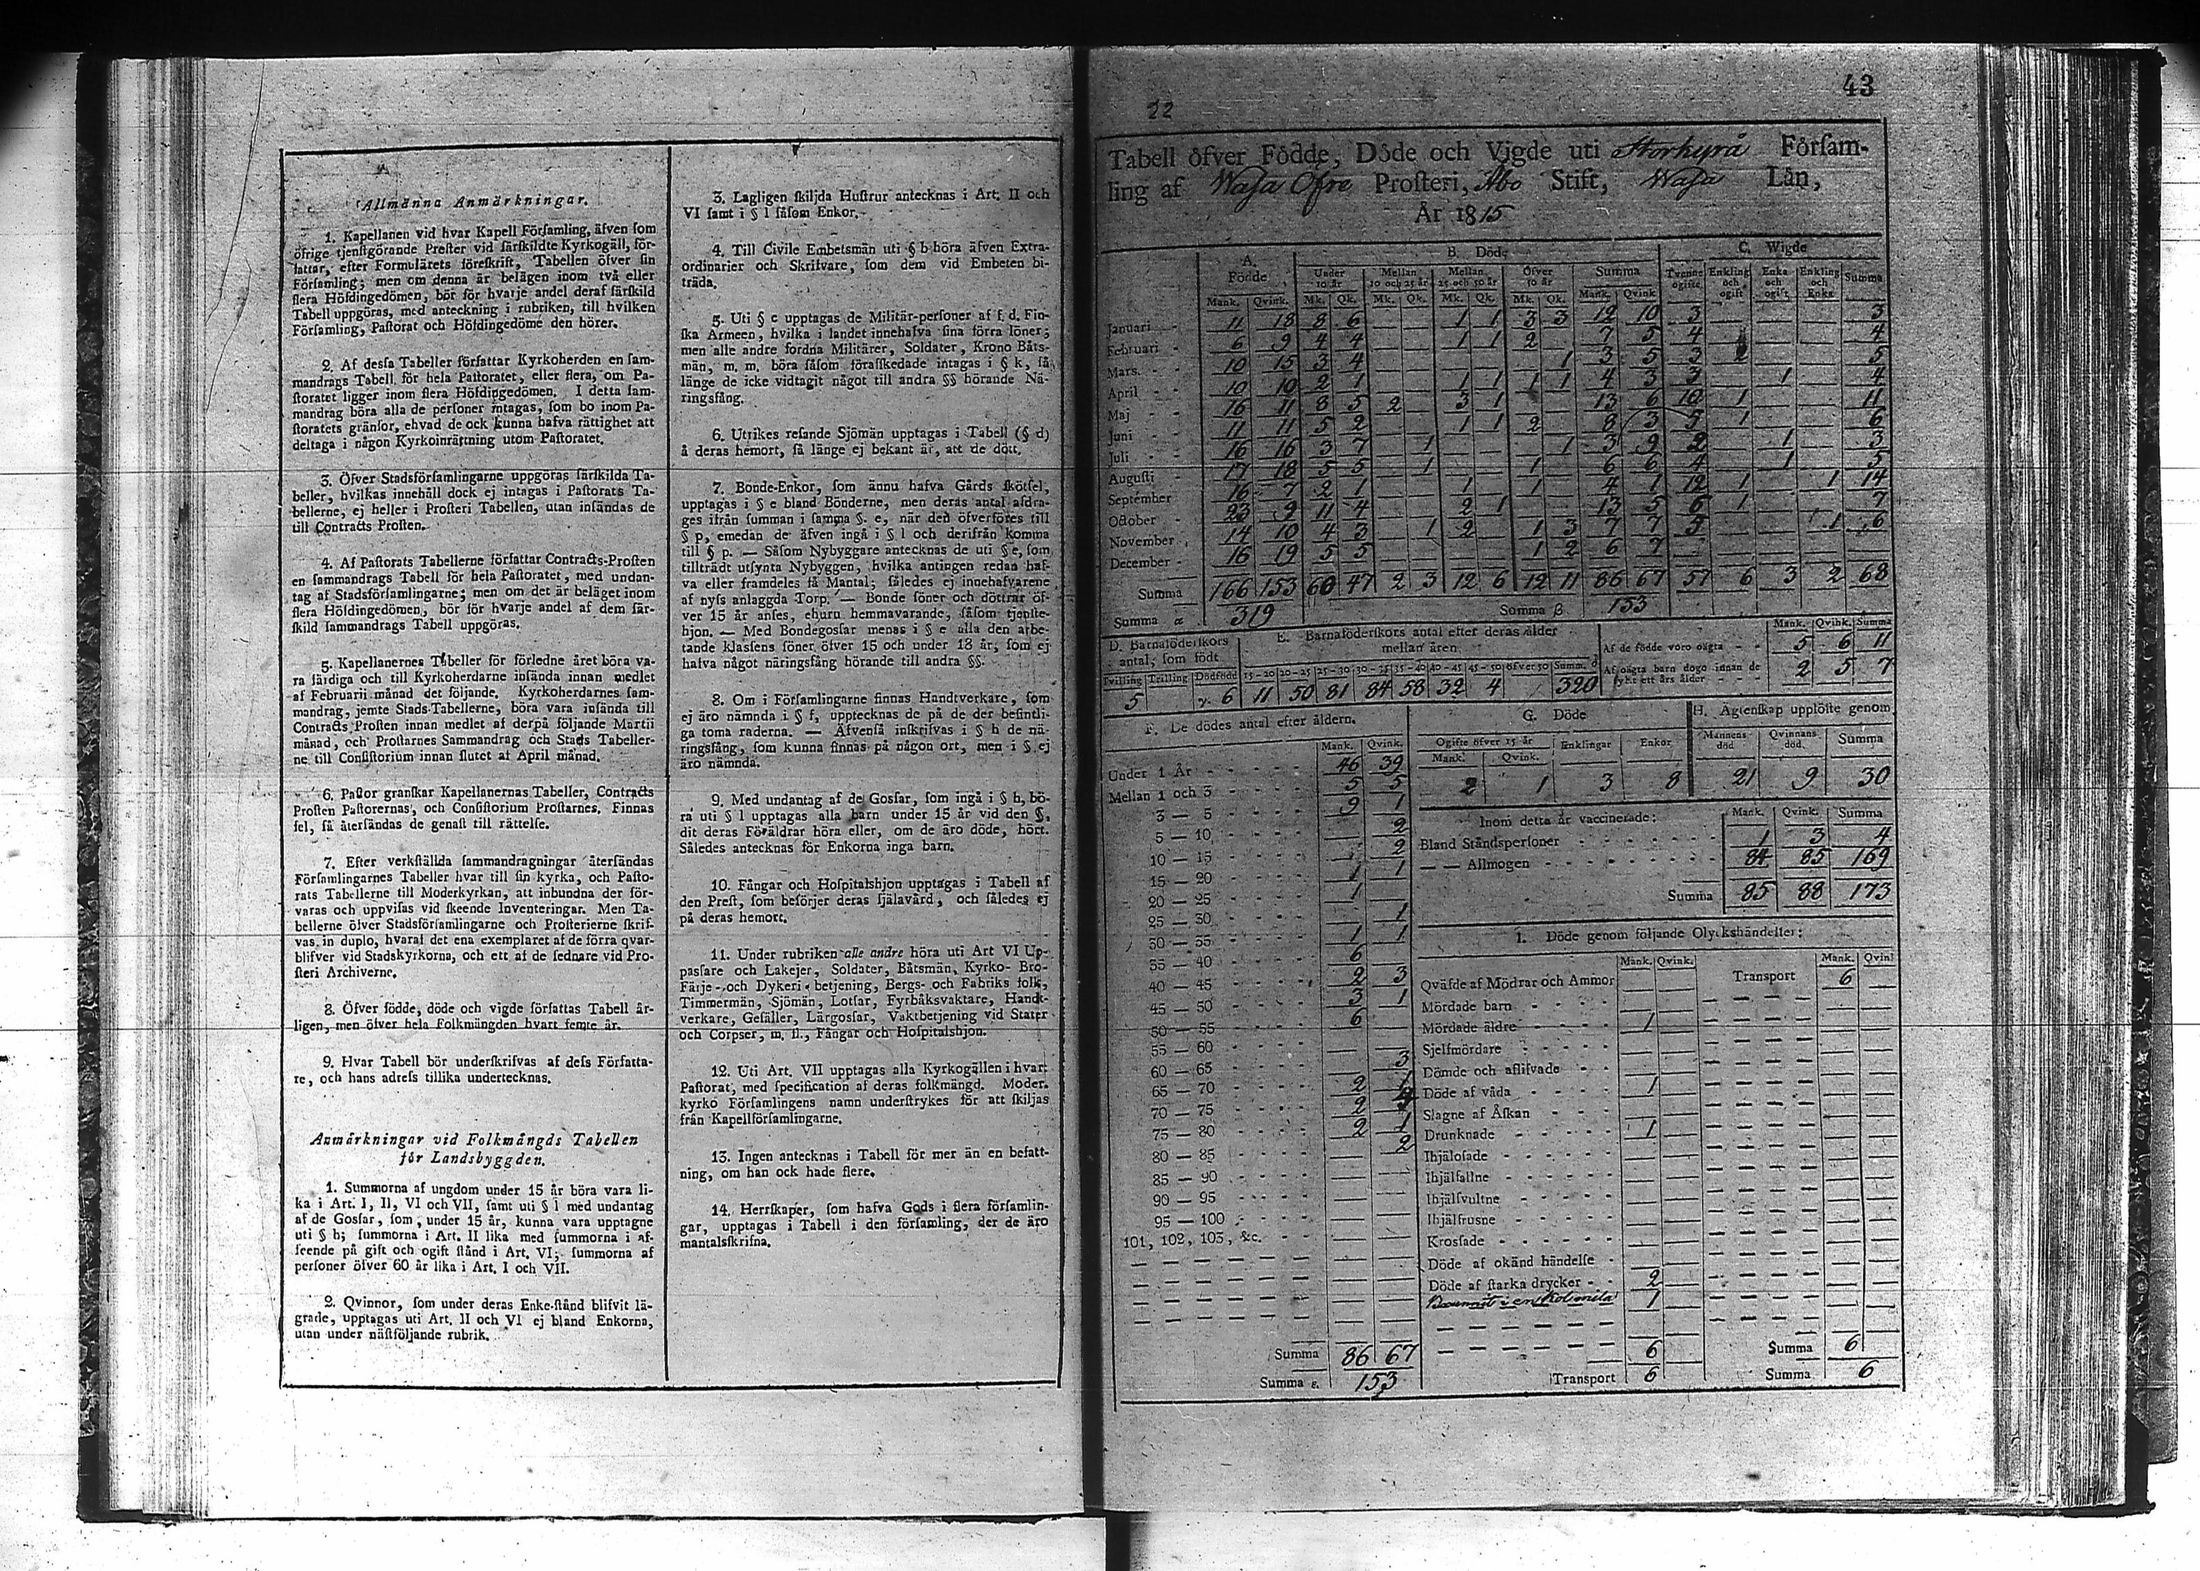 Allmänna Anmärkningar.
1. Kapellanen vid hvar Kapell Församling, äfven som
öfrige tjenstgörande Prester vid särskildte Kyrkogäll, för-
fattar, efter Formulärets föreskrift, Tabellen öfver sin
Församling; men om denna är belägen inom två eller
flera Höfdingedömen, bör för hvarje andel deraf särskild
Tabell uppgöras, med anteckning i rubriken, till hvilken
Församling, Pastorat och Höfdingedöme den hörer.
2. Af dessa Tabeller författar Kyrkoherden en sam-
mandrags Tabell för hela Pastoratet, eller flera, om Pa-
storatet ligger inom flera Höfdingedömen. I detta sam-
mandrag böra alla de personer intagas, som bo inom Pa-
storatets gränsor, ehvad de ock kunna hafva rättighet att
deltaga i någon Kyrkoinrättning utom Pastoratet.
3. Öfver Stadsförsamlingarne uppgöras särskilda Ta-
beller, hvilkas innehåll dock ej intagas i Pastorats Ta-
bellerne, ej heller i Prosteri Tabellen, utan insändas de
till Contracts Prosten.
4. Af Pastorats Tabellerne författar Contracts-Prosten
en sammandrags Tabell för hela Pastoratet, med undan-
tag af Stadsförsamlingarne; men om det är beläget inom
flera Höfdingedömen, bör för hvarje andel af dem sär-
skild sammandrags Tabell uppgöras.
5. Kapellanernes Tabeller för förledne året böra va-
ra färdiga och till Kyrkoherdarne insända innan medlet
af Februarii månad det följande. Kyrkoherdarnes sam-
mandrag, jemte Stads-Tabellerne, böra vara insända till
Contracts Prosten innan medlet af derpå följande Martii
månad, och Prostarnes Sammandrag och Stads Tabeller-
ne till Consistorium innan slutet af April månad.
6. Pastor granskar Kapellanernas Tabeller, Contracts
Prosten Pastorernas, och Consistorium Prostarnes. Finnas
fel, så återsändas de genast till rättelse.
7. Efter verkställda sammandragningar återsändas
Församlingarnes Tabeller hvar till sin kyrka, och Pasto-
rats Tabellerne till Moderkyrkan, att inbundna der för-
varas och uppvisas vid skeende Inventeringar. Men Ta-
bellerne öfver Stadsförsamlingarne och Prosterierne skrif-
vas in duplo, hvaraf det ena exemplaret af de förra qvar-
blifver vid Stadskyrkorna, och ett af de sednare vid Pro-
steri Archiverne.
8. Öfver födde, döde och vigde författas Tabell år-
ligen, men öfver hela Folkmängden hvart femte år.
9. Hvar Tabell bör underskrifvas af dess Författa-
re, och hans adress tillika undertecknas.
Anmärkningar vid Folkmängds Tabellen
för Landsbyggden.
1. Summorna af ungdom under 15 år böra vara li-
ka i Art. I, II, VI och VII, samt uti § l med undantag
af de Gossar, som, under 15 år, kunna vara upptagne
uti § h; summorna i Art. II lika med summorna i af-
seende på gift och ogift stånd i Art. VI; summorna af
personer öfver 60 år lika i Art. I och VII.
2. Qvinnor, som under deras Enke-stånd blifvit lä-
grade, upptagas uti Art. II och VI ej bland Enkorna,
utan under nästföljande rubrik.
3. Lagligen skiljda Hustrur antecknas i Art. II och
VI samt i § l såsom Enkor.
4. Till Civile Embetsmän uti § b höra äfven Extra-
ordinarier och Skrifvare, som dem vid Embeten bi-
träda.
5. Uti § c upptagas de Militär-personer af f. d. Fin-
ska Armeen, hvilka i landet innehafva sina förra löner;
men alle andre fordna Militärer, Soldater, Krono Båts-
män, m. m. böra såsom förafskedade intagas i § k, så
länge de icke vidtagit något till andra §§ hörande Nä-
ringsfång.
6. Utrikes resande Sjömän upptagas i Tabell (§ d)
å deras hemort, så länge ej bekant är, att de dött.
7. Bonde-Enkor, som ännu hafva Gårds skötsel,
upptagas i § e bland Bönderne, men deras antal afdra-
ges ifrån summan i samma §. e, när den öfverföres till
§ p, emedan de äfven ingå i § l och derifrån komma
till § p. — Såsom Nybyggare antecknas de uti § e, som
tillträdt utsynta Nybyggen, hvilka antingen redan haf-
va eller framdeles få Mantal; således ej innehafvarene
af nyss anlaggda Torp. — Bonde söner och döttrar öf-
ver 15 år anses, ehuru hemmavarande, såsom tjenste-
hjon. — Med Bondegossar menas i § e alla den arbe-
tande klassens söner öfver 15 och under 18 år, som ej
hafva något näringsfång hörande till andra §§.
8. Om i Församlingarne finnas Handtverkare, som
ej äro nämnda i § f, upptecknas de på de der befintli-
ga toma raderna. — Äfvenså inskrifvas i § h de nä-
ringsfång, som kunna finnas på någon ort, men i § ej
äro nämnda.
9. Med undantag af de Gossar, som ingå i § h, bö-
ra uti § l upptagas alla barn under 15 år vid den §,
dit deras Föräldrar höra eller, om de äro döde, hört.
Således antecknas för Enkorna inga barn.
10. Fångar och Hospitalshjon upptagas i Tabell af
den Prest, som besörjer deras själavård, och således ej
på deras hemort.
11. Under rubriken alle andre höra uti Art VI Up-
passare och Lakejer, Soldater, Båtsmän, Kyrko- Bro-
Färje- och Dykeri- betjening, Bergs- och Fabriks folk,
Timmermän, Sjömän, Lotsar, Fyrbåksvaktare, Handt-
verkare, Gesäller, Lärgossar, Vaktbetjening vid Stater
och Corpser, m. fl., Fångar och Hospitalshjon.
12. Uti Art. VII upptagas alla Kyrkogällen i hvart
Pastorat, med specification af deras folkmängd. Moder-
kyrko Församlingens namn understrykes för att skiljas
från Kapellförsamlingarne.
13. Ingen antecknas i Tabell för mer än en befatt-
ning, om han ock hade flere.
14. Herrskaper, som hafva Gods i flera församlin-
gar, upptagas i Tabell i den församling, der de äro
mantalsskrifna.
43
22
Tabell öfver Födde, Döde och Vigde uti Storkyrå Försam-
ling af Wasa Öfre Prosteri, Åbo Stift, Wasa Län,
År 1815
A. Födde B. Döde C. Wigde
Under 10 år Mellan 10 och 25 år Mellan 25 och 50 år Öfver 50 år Summa Tvenne ogifte Enkling och ogift Enka och ogift Enkling och Enka Summa
Mank. Qvink. Mk. Qk. Mk. Qk. Mk. Qk. Mk. Qk. Mank. Qvink
Januari 11 18 8 6 1 1 3 3 12 10 3 3
Februari 6 9 4 4 1 1 2 7 5 4 4
Mars 10 15 3 4 1 3 5 3 2 5
April 10 10 2 1 1 1 1 1 4 3 3 1 4
Maj 16 11 8 5 2 3 1 13 6 10 1 11
Juni 11 11 5 2 1 1 2 8 3 5 1 6
Juli 16 16 3 7 1 1 3 9 2 1 3
Augusti 17 18 5 5 1 1 6 6 4 1 5
September 16 7 2 1 1 1 4 1 12 1 1 14
October 23 9 11 4 2 1 13 5 6 1 7
November 14 10 4 3 1 2 1 3 7 7 5 1 6
December 16 19 5 5 1 2 6 7
Summa 166 153 60 47 2 3 12 6 12 11 86 67 57 6 3 2 68
Summa α 319 Summa β 153
D. Barnaföderskors antal, som födt
Tvilling Trilling Dödfödd
5 γ. 6
E. Barnaföderskors antal efter deras ålder mellan åren
15-20 20-25 25-30 30-35 35-40 40-45 45-50 öfver 50 Summ. δ
11 50 81 84 58 32 4 320
Mank. Qvink. Summa
Af de födde voro oägta 5 6 11
Af oägta barn dogo innan de fyllt ett års ålder 2 5 7
F. De dödes antal efter åldern.
Mank. Qvink.
Under 1 År 46 39
Mellan 1 och 3 5 5
3 — 5 9 1
5 — 10 2
10 — 15 2
15 — 20 1 1
20 — 25 1
25 — 30 1
30 — 35 1 1
35 — 40 6
40 — 45 2 3
45 — 50 3 1
50 — 55 6
55 — 60
60 — 65 3
65 — 70 2 1
70 — 75 2
75 — 80 2 1
80 — 85 2
85 — 90
90 — 95
95 — 100
101, 102, 103, &c.
Summa 86 67
Summa ε. 153
G. Döde
Ogifte öfver 15 år Enklingar Enkor
Mank. Qvink.
2 1 3 8
H. Ägtenskap upplöste genom
Mannens död Qvinnans död. Summa
21 9 30
Inom detta år vaccinerade: Mank. Qvink. Summa
Bland Ståndspersoner 1 3 4
— — Allmogen 84 85 169
Summa 85 88 173
I. Döde genom följande Olyckshändelser:
Mank. Qvink. Mank. Qvink
Qväfde af Mödrar och Ammor Transport 6
Mördade barn
Mördade äldre 1
Sjelfmördare
Dömde och aflifvade
Döde af våda 1
Slagne af Åskan
Drunknade 1
Ihjälosade
Ihjälfallne
Ihjälsvultne
Ihjälfrusne
Krossade
Döde af okänd händelse
Döde af starka drycker 2
Brunnit i en Kolmila 1
6 Summa 6
Transport 6 Summa 6